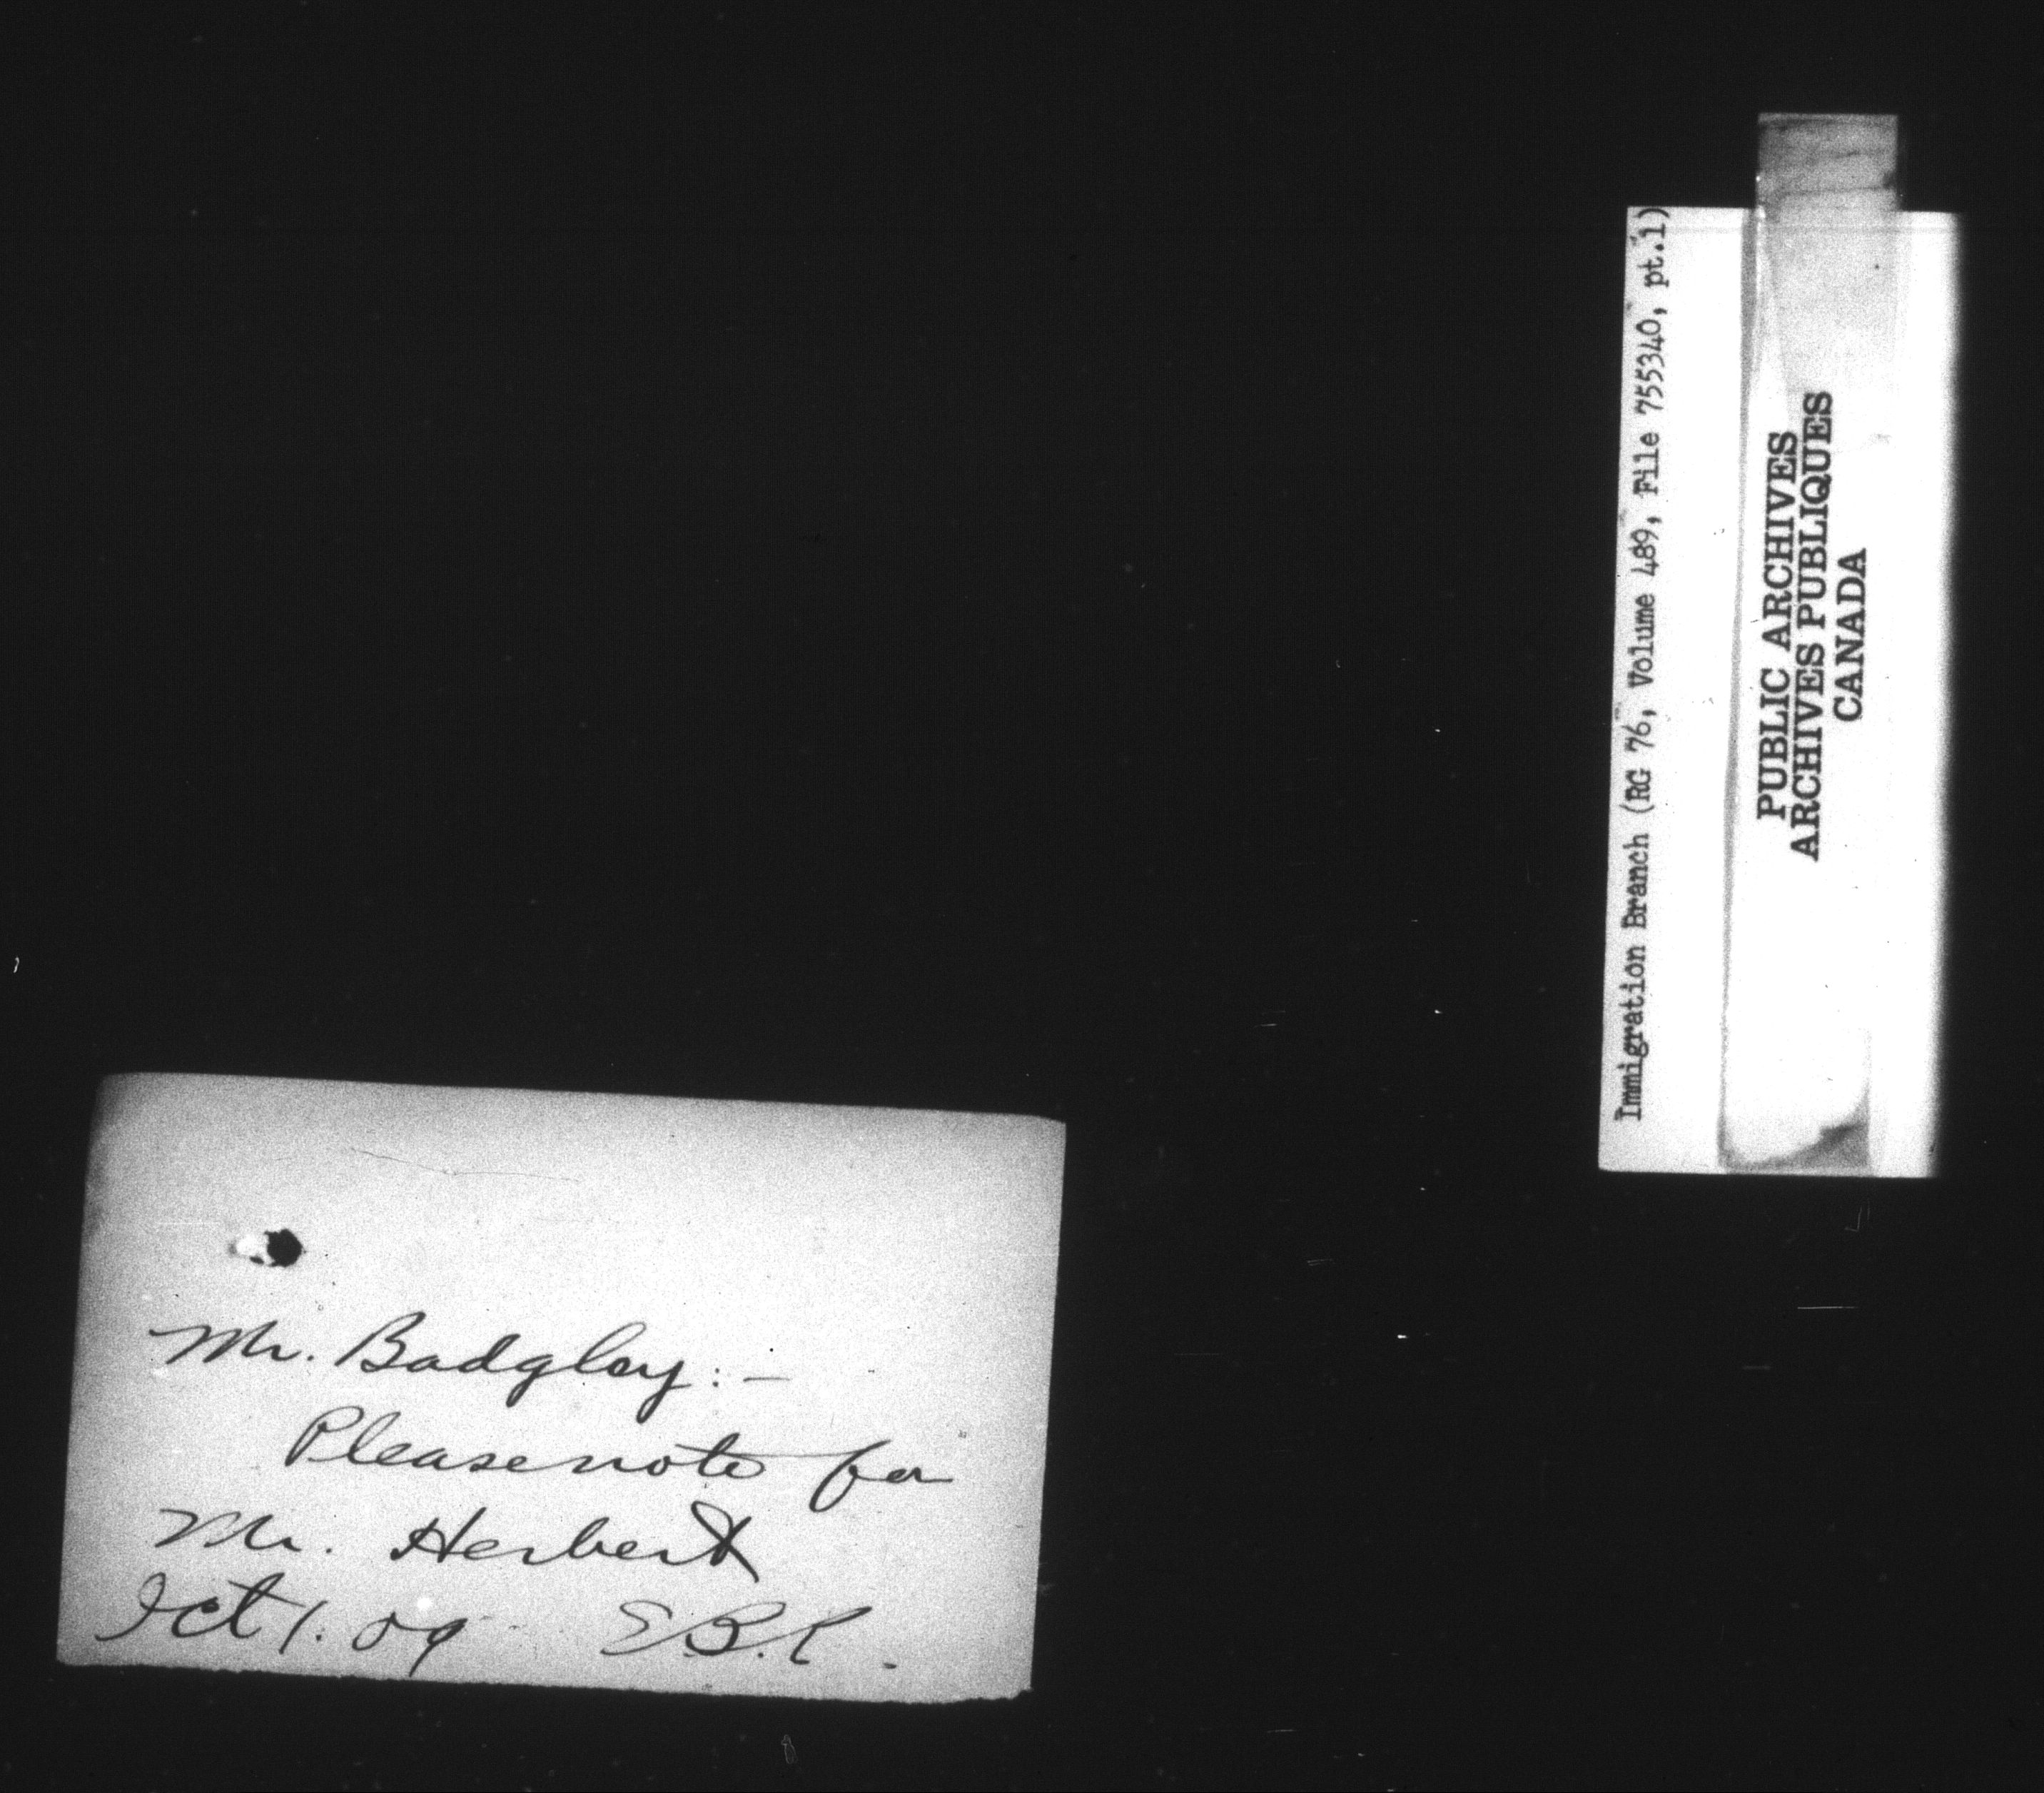 Mr. Badgley:-
Please note for
Mr. Herbert
Oct 1. 09 E.B.R.
Immigration Branch (RG 76, Volume 489, File 755340, pt.1)
PUBLIC ARCHIVES
ARCHIVES PUBLIQUES
CANADA